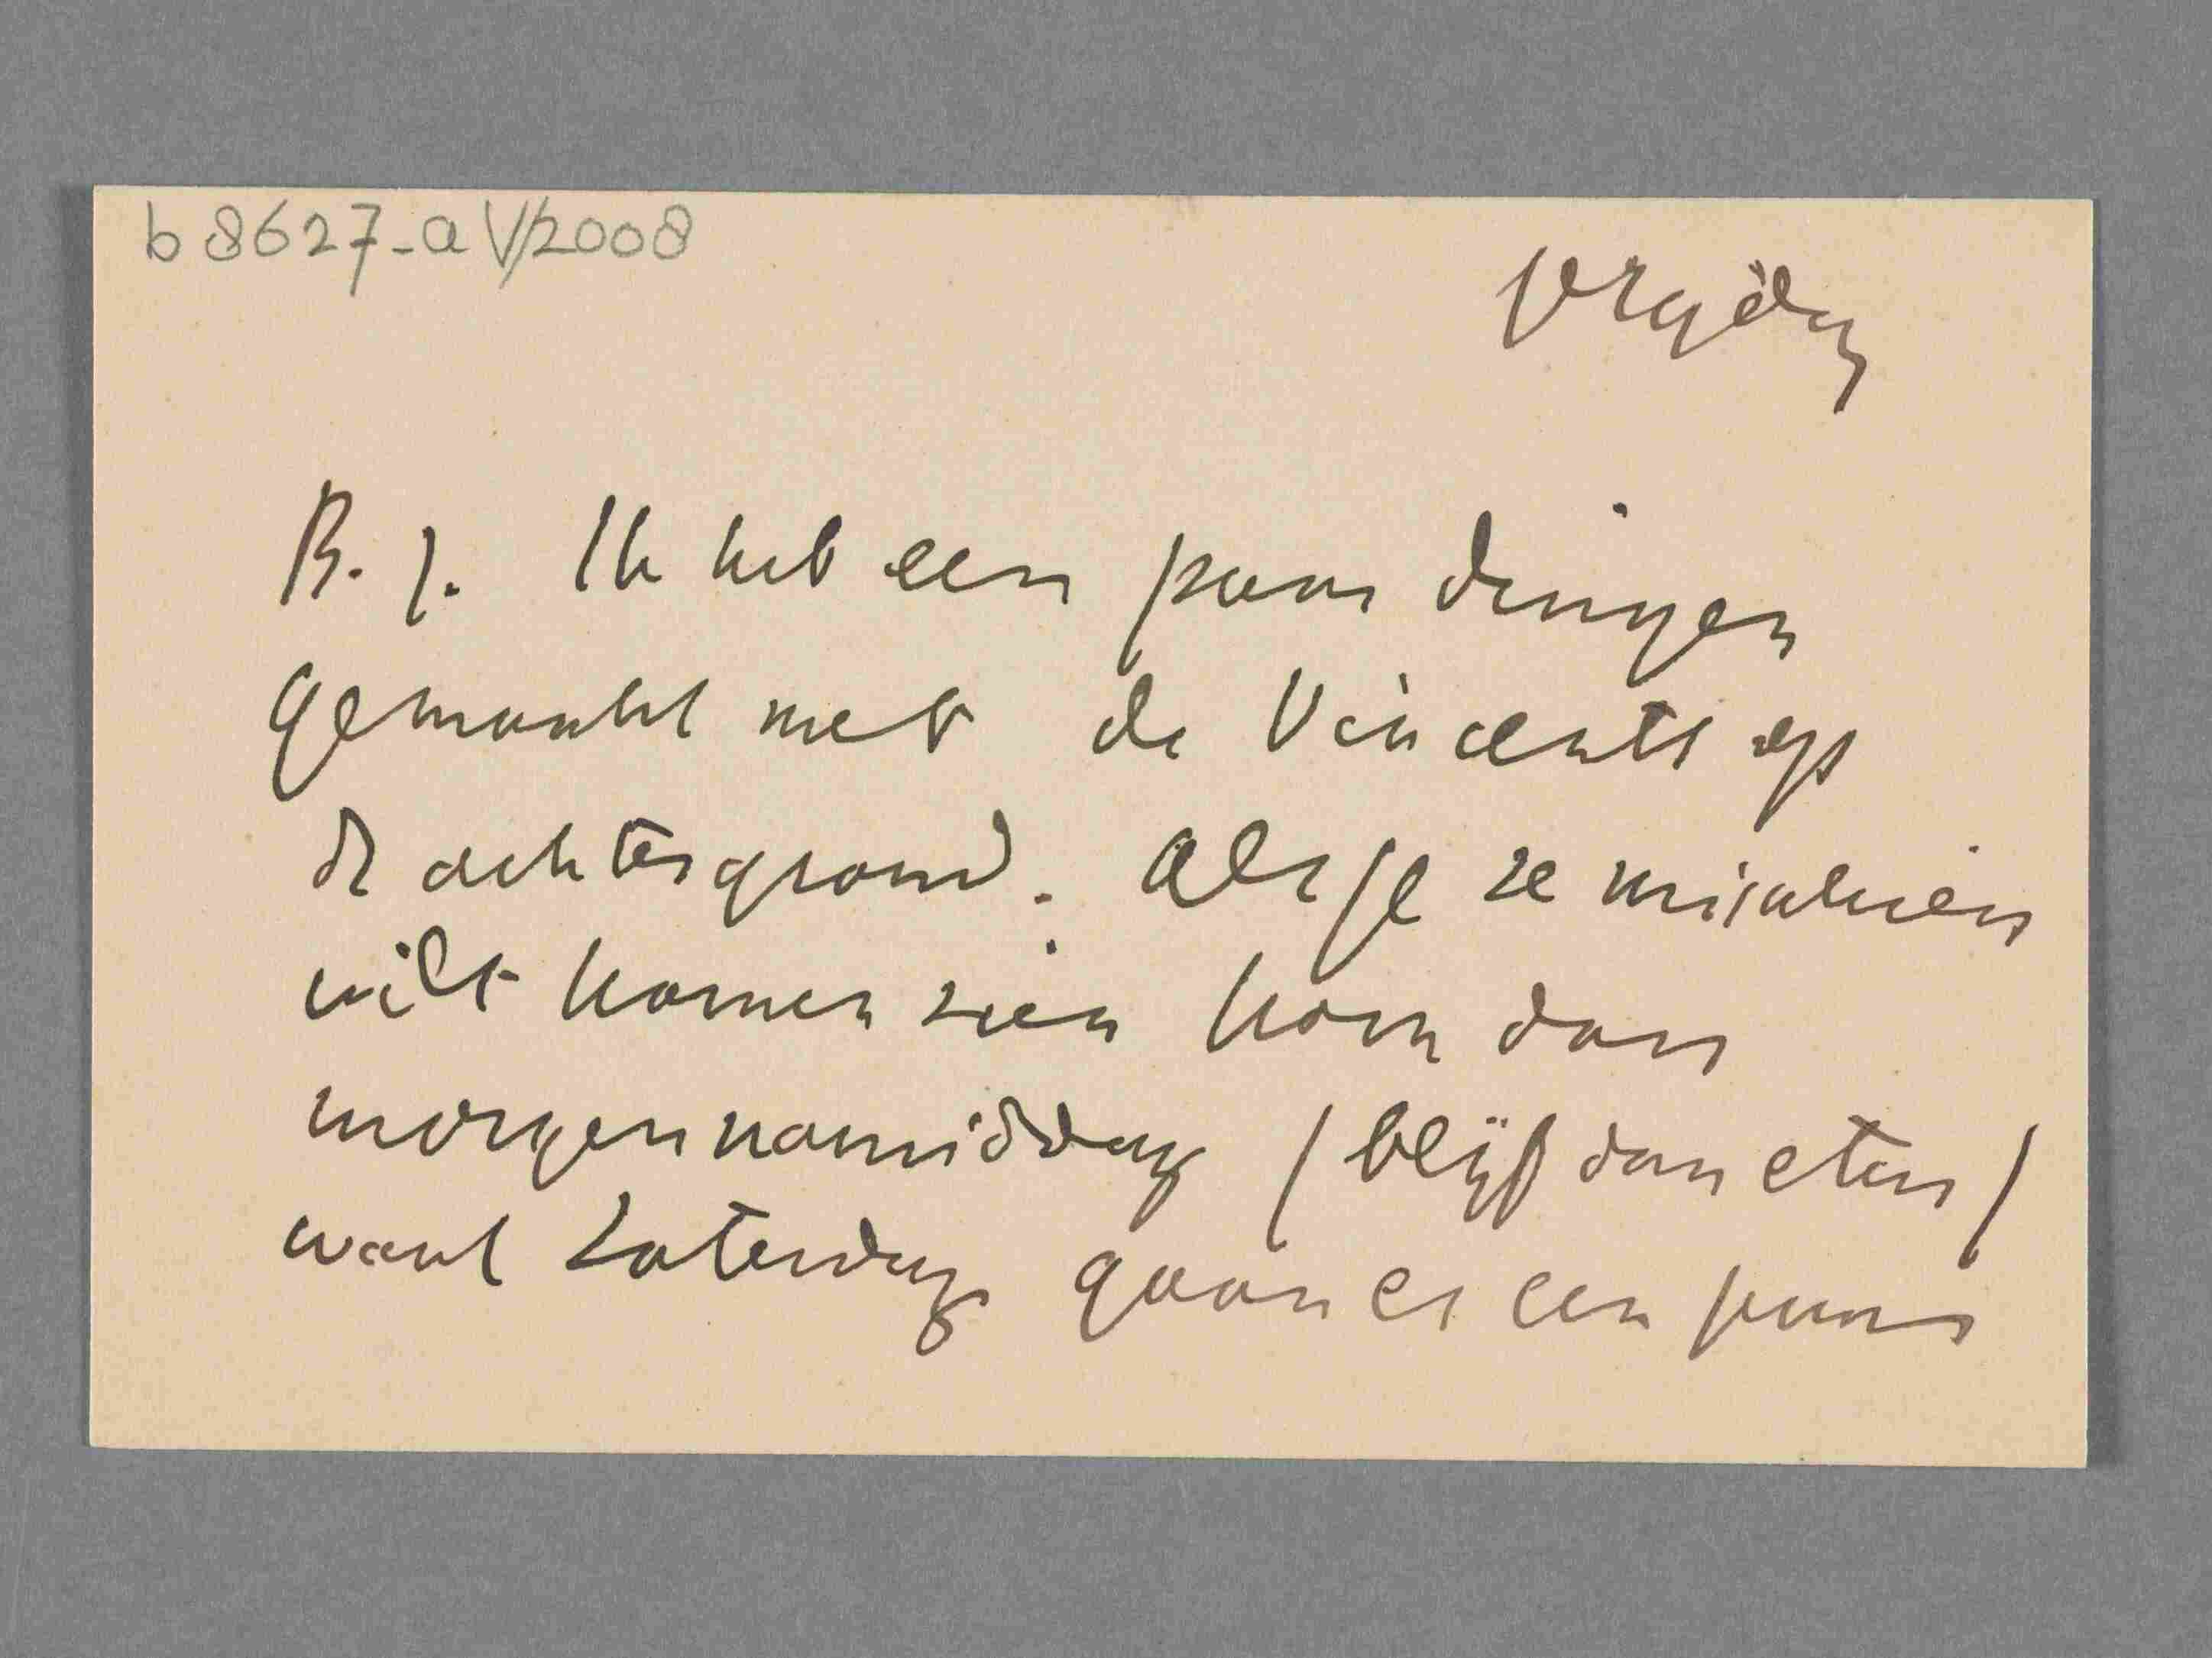 b 8627-a V/2008
vrijdag
B. J. Ik heb een paar dingen
gemaakt met de Vincents op
de achtergrond. Als je ze misschien
wilt komen zien kom dan
morgen namiddag (blijf dan eten)
want Zaterdag gaan er een paar